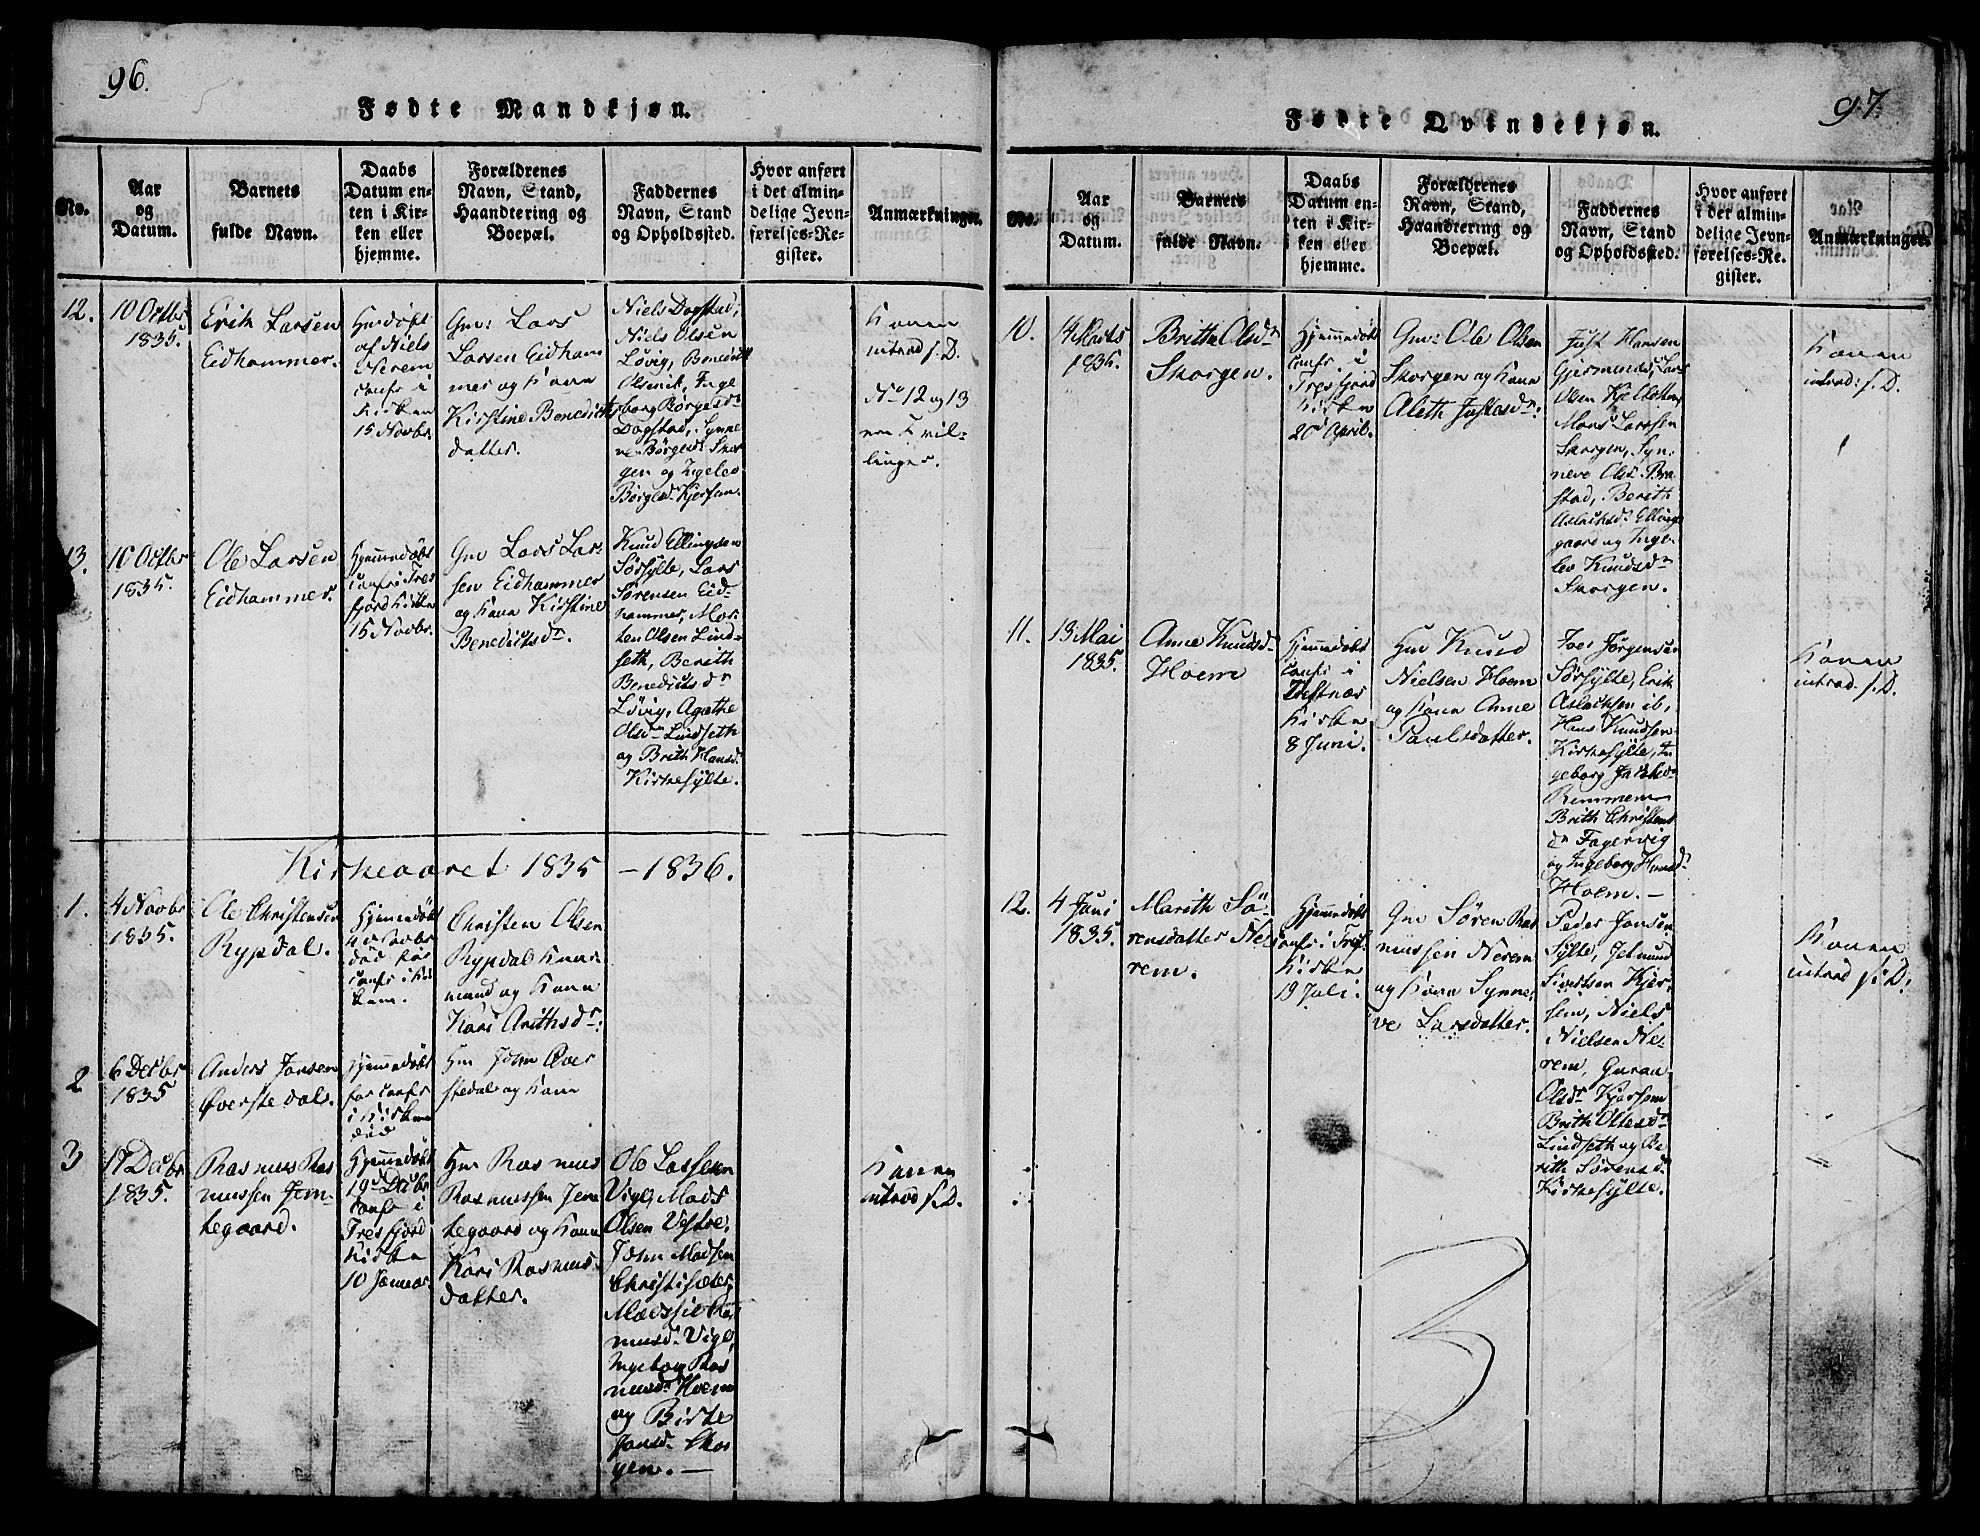 96.
Fødte Mandkjøn.
No.
Aar
og
Datum.
Barnets
fulde Navn.
Daabs
Datum en-
ten i Kir-
ken eller
hjemme.
Forældrenes
Navn, Stand,
Haandtering og
Boepæl.
Faddernes
Navn, Stand
og Opholdssted.
Hvor anført
i det almin-
delige Jevn-
førelses-Re-
gister.
Anmærkninger.
12.
10 Octbr
1835.
Erik Larsen
Eidhammer.
Hmdøbt
af Niels
Nerem
confr i
Kirken
15 Novbr.
Gm: Lars
Larsen Eidham
mer og Kone
Kirstine Benedicts
datter.
Niels Dogstad,
Niels Olsen
Løvig, Benedict
Olsvik, Inge
borg Børgesdr
Dogstad, Synne
ve Børgesdr Skor
gen og Ingeleo
Børgesdr Kjersem.
Konen
introd s. D.
No 12 og 13
ere Tvil-
linger.
13.
10 Octbr
1835.
Ole Larsen
Eidhammer.
Hjemmedøbt
confr i Tres
fjord Kirke
15 Novbr.
Gm Lars Lar-
sen Eidhammer
og Kone Kirstine
Benedictsdr.
Knud Ellingsen
Sørsylte, Lars
Sørensen Eid-
hammer, Mor
ten Olsen Lind-
seth, Berith
Benedictsdr
Løvig, Agathe
Olsdr Lindseth
og Brith Hansd.
Kirkesylte.
Kirkeaaret 1835 – 1836.
1.
4 Novbr
1835.
Ole Christensen
Rypdal.
Hjemmedøbt
4 Novbr
død før
confr i Kir
ken.
Christen Olsen
Rypdal
mand og Kone
Kari Arithsdr:
2
6 Decbr
1835
Anders Jonsen
Øverstedal.
Hjemmedøbt
før confr
i Kirken
død
Hm John Øver
stedal og Kone
3
17 Decbr
1835.
Rasmus Ras
mussen Jem-
tegaard.
Hjemmedøbt
19d Decbr
confr i
Tresfjord
Kirke
10 Januar.
Hm Rasmus
Rasmussen Jem
tegaard og Kone
Kari Rasmus
datter.
Ole Lassesen
Vigl, Mads
Olsen Vestre,
John Madsen
Christisæter,
Madssie Ras
musd. Vigl,
Ingeborg Ras
musd. Hoem
og Birte
Jonsd. Skor
gen. –
Konen
introd s. D.
97.
Fødte Qvindekjøn.
No.
Aar
og
Datum.
Barnets
fulde Navn.
Daabs
Datum en-
ten i Kir-
ken eller
hjemme.
Forældrenes
Navn, Stand,
Haandtering og
Boepæl.
Faddernes
Navn, Stand
og Opholdssted.
Hvor anført
i det almin-
delige Jevn-
førelses-Re-
gister.
Anmærkninger.
10.
4 Marts
1835.
Britha Olsdr
Skorgen.
Hjemmedøbt
confr i
Tresfjord
Kirke
20d April.
Gm: Ole Olsen
Skorgen og Kone
Aleth Justasdr:
Just Hansen
Gjermundnes, Lars
Olsen Kjelbotn,
Mons Larssen
Skorgen, Syn-
neve Olsdr Bra
stad, Berith
Aslaksdr Ellings
gaard og Inge-
lev Knudsdr
Skorgen.
Konen
introd: s. D.
11.
13 Mai
1835.
Anne Knudsdr
Hoem
Hjemmedøbt
confr i
Vestnæs
Kirke
8 Juni.
Hm Knud
Nielsen Hoem
og Kone Anne
Paulsdatter.
Iver Jørgensen
Sørsylte, Erik
Aslaksen ib,
Hans Knudsen
Kirkesylte, In
geborg
Remmem
Brith Christens
dr Fagervig
og Ingeborg Knudsdr
Hoem. –
Konen
introd. s. D.
12.
4 Juni
1835.
Marith Sø-
rensdatter Ne-
rem.
Hjemmedøbt
confr i Tresf.
Kirke
19 Juli.
Gm Søren Ras
mussen Nerem
og Kone Synne-
ve Larsdatter.
Peder Jonsen
Sylte, Jetmund
Sivertsen Kjer-
sem, Niels
Nielsen Ne-
rem, Guran
Olsdr Kjersem
Brith Oltesdr
Lindseth og Be
rith Sørensdr
Kirkesylte.
Konen
introd s: D: